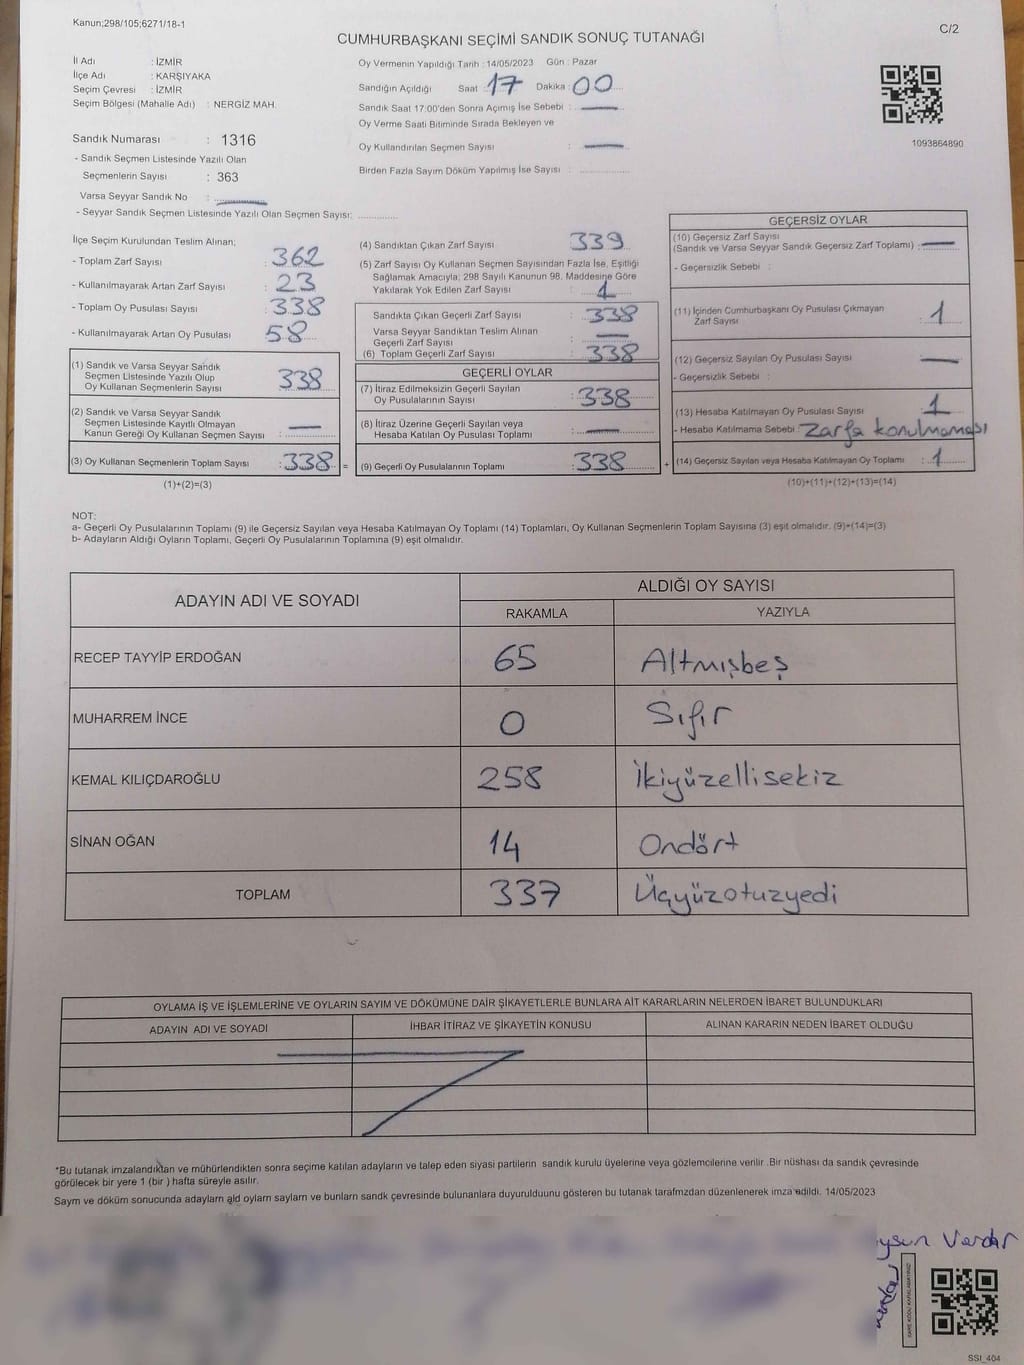 Kanun;298/105;6271/18-1
C/2
CUMHURBAŞKANI SEÇİMİ SANDIK SONUÇ TUTANAĞI
İl Adı : İZMİR
İlçe Adı : KARŞIYAKA
Seçim Çevresi : İZMİR
Seçim Bölgesi (Mahalle Adı) : NERGİZ MAH.
Sandık Numarası : 1316
- Sandık Seçmen Listesinde Yazılı Olan
Seçmenlerin Sayısı : 363
Varsa Seyyar Sandık No :
- Seyyar Sandık Seçmen Listesinde Yazılı Olan Seçmen Sayısı:
Oy Vermenin Yapıldığı Tarih : 14/05/2023 Gün : Pazar
Sandığın Açıldığı Saat : 17 Dakika : 00
Sandık Saat 17:00'den Sonra Açımış İse Sebebi : —
Oy Verme Saati Bitiminde Sırada Bekleyen ve
Oy Kullandırılan Seçmen Sayısı : —
Birden Fazla Sayım Döküm Yapılmış İse Sayısı :
1093864890
İlçe Seçim Kurulundan Teslim Alınan;
- Toplam Zarf Sayısı : 362
- Kullanılmayarak Artan Zarf Sayısı : 23
- Toplam Oy Pusulası Sayısı : 338
- Kullanılmayarak Artan Oy Pusulası : 58
(1) Sandık ve Varsa Seyyar Sandık
Seçmen Listesinde Yazılı Olup
Oy Kullanan Seçmenlerin Sayısı : 338
(2) Sandık ve Varsa Seyyar Sandık
Seçmen Listesinde Kayıtlı Olmayan
Kanun Gereği Oy Kullanan Seçmen Sayısı : —
(3) Oy Kullanan Seçmenlerin Toplam Sayısı : 338 =
(1)+(2)=(3)
(4) Sandıktan Çıkan Zarf Sayısı : 339
(5) Zarf Sayısı Oy Kullanan Seçmen Sayısından Fazla İse, Eşitliği
Sağlamak Amacıyla; 298 Sayılı Kanunun 98. Maddesine Göre
Yakılarak Yok Edilen Zarf Sayısı : 1
Sandıkta Çıkan Geçerli Zarf Sayısı : 338
Varsa Seyyar Sandıktan Teslim Alınan
Geçerli Zarf Sayısı : —
(6) Toplam Geçerli Zarf Sayısı : 338
GEÇERLİ OYLAR
(7) İtiraz Edilmeksizin Geçerli Sayılan
Oy Pusulalarının Sayısı : 338
(8) İtiraz Üzerine Geçerli Sayılan veya
Hesaba Katılan Oy Pusulası Toplamı : —
(9) Geçerli Oy Pusulalarının Toplamı : 338 +
GEÇERSİZ OYLAR
(10) Geçersiz Zarf Sayısı
(Sandık ve Varsa Seyyar Sandık Geçersiz Zarf Toplamı) : —
- Geçersizlik Sebebi :
(11) İçinden Cumhurbaşkanı Oy Pusulası Çıkmayan
Zarf Sayısı : 1
(12) Geçersiz Sayılan Oy Pusulası Sayısı : —
- Geçersizlik Sebebi :
(13) Hesaba Katılmayan Oy Pusulası Sayısı : 1
- Hesaba Katılmama Sebebi : Zarfa konulmaması
(14) Geçersiz Sayılan veya Hesaba Katılmayan Oy Toplamı : 1
(10)+(11)+(12)+(13)=(14)
NOT:
a- Geçerli Oy Pusulalarının Toplamı (9) ile Geçersiz Sayılan veya Hesaba Katılmayan Oy Toplamı (14) Toplamları, Oy Kullanan Seçmenlerin Toplam Sayısına (3) eşit olmalıdır. (9)+(14)=(3)
b- Adayların Aldığı Oyların Toplamı, Geçerli Oy Pusulalarının Toplamına (9) eşit olmalıdır.
ADAYIN ADI VE SOYADI ALDIĞI OY SAYISI
RAKAMLA YAZIYLA
RECEP TAYYİP ERDOĞAN 65 Altmışbeş
MUHARREM İNCE 0 Sıfır
KEMAL KILIÇDAROĞLU 258 İkiyüzellisekiz
SİNAN OĞAN 14 Ondört
TOPLAM 337 Üçyüzotuzyedi
OYLAMA İŞ VE İŞLEMLERİNE VE OYLARIN SAYIM VE DÖKÜMÜNE DAİR ŞİKAYETLERLE BUNLARA AİT KARARLARIN NELERDEN İBARET BULUNDUKLARI
ADAYIN ADI VE SOYADI İHBAR İTİRAZ VE ŞİKAYETİN KONUSU ALINAN KARARIN NEDEN İBARET OLDUĞU
*Bu tutanak imzalandıktan ve mühürlendikten sonra seçime katılan adayların ve talep eden siyasi partilerin sandık kurulu üyelerine veya gözlemcilerine verilir .Bir nüshası da sandık çevresinde
görülecek bir yere 1 (bir ) hafta süreyle asılır.
Saym ve döküm sonucunda adayların ald oylarn sayları ve bunlarn sandk çevresinde bulunanlara duyurulduunu gösteren bu tutanak tarafmzdan düzenlenerek imza edildi. 14/05/2023
SSI_404